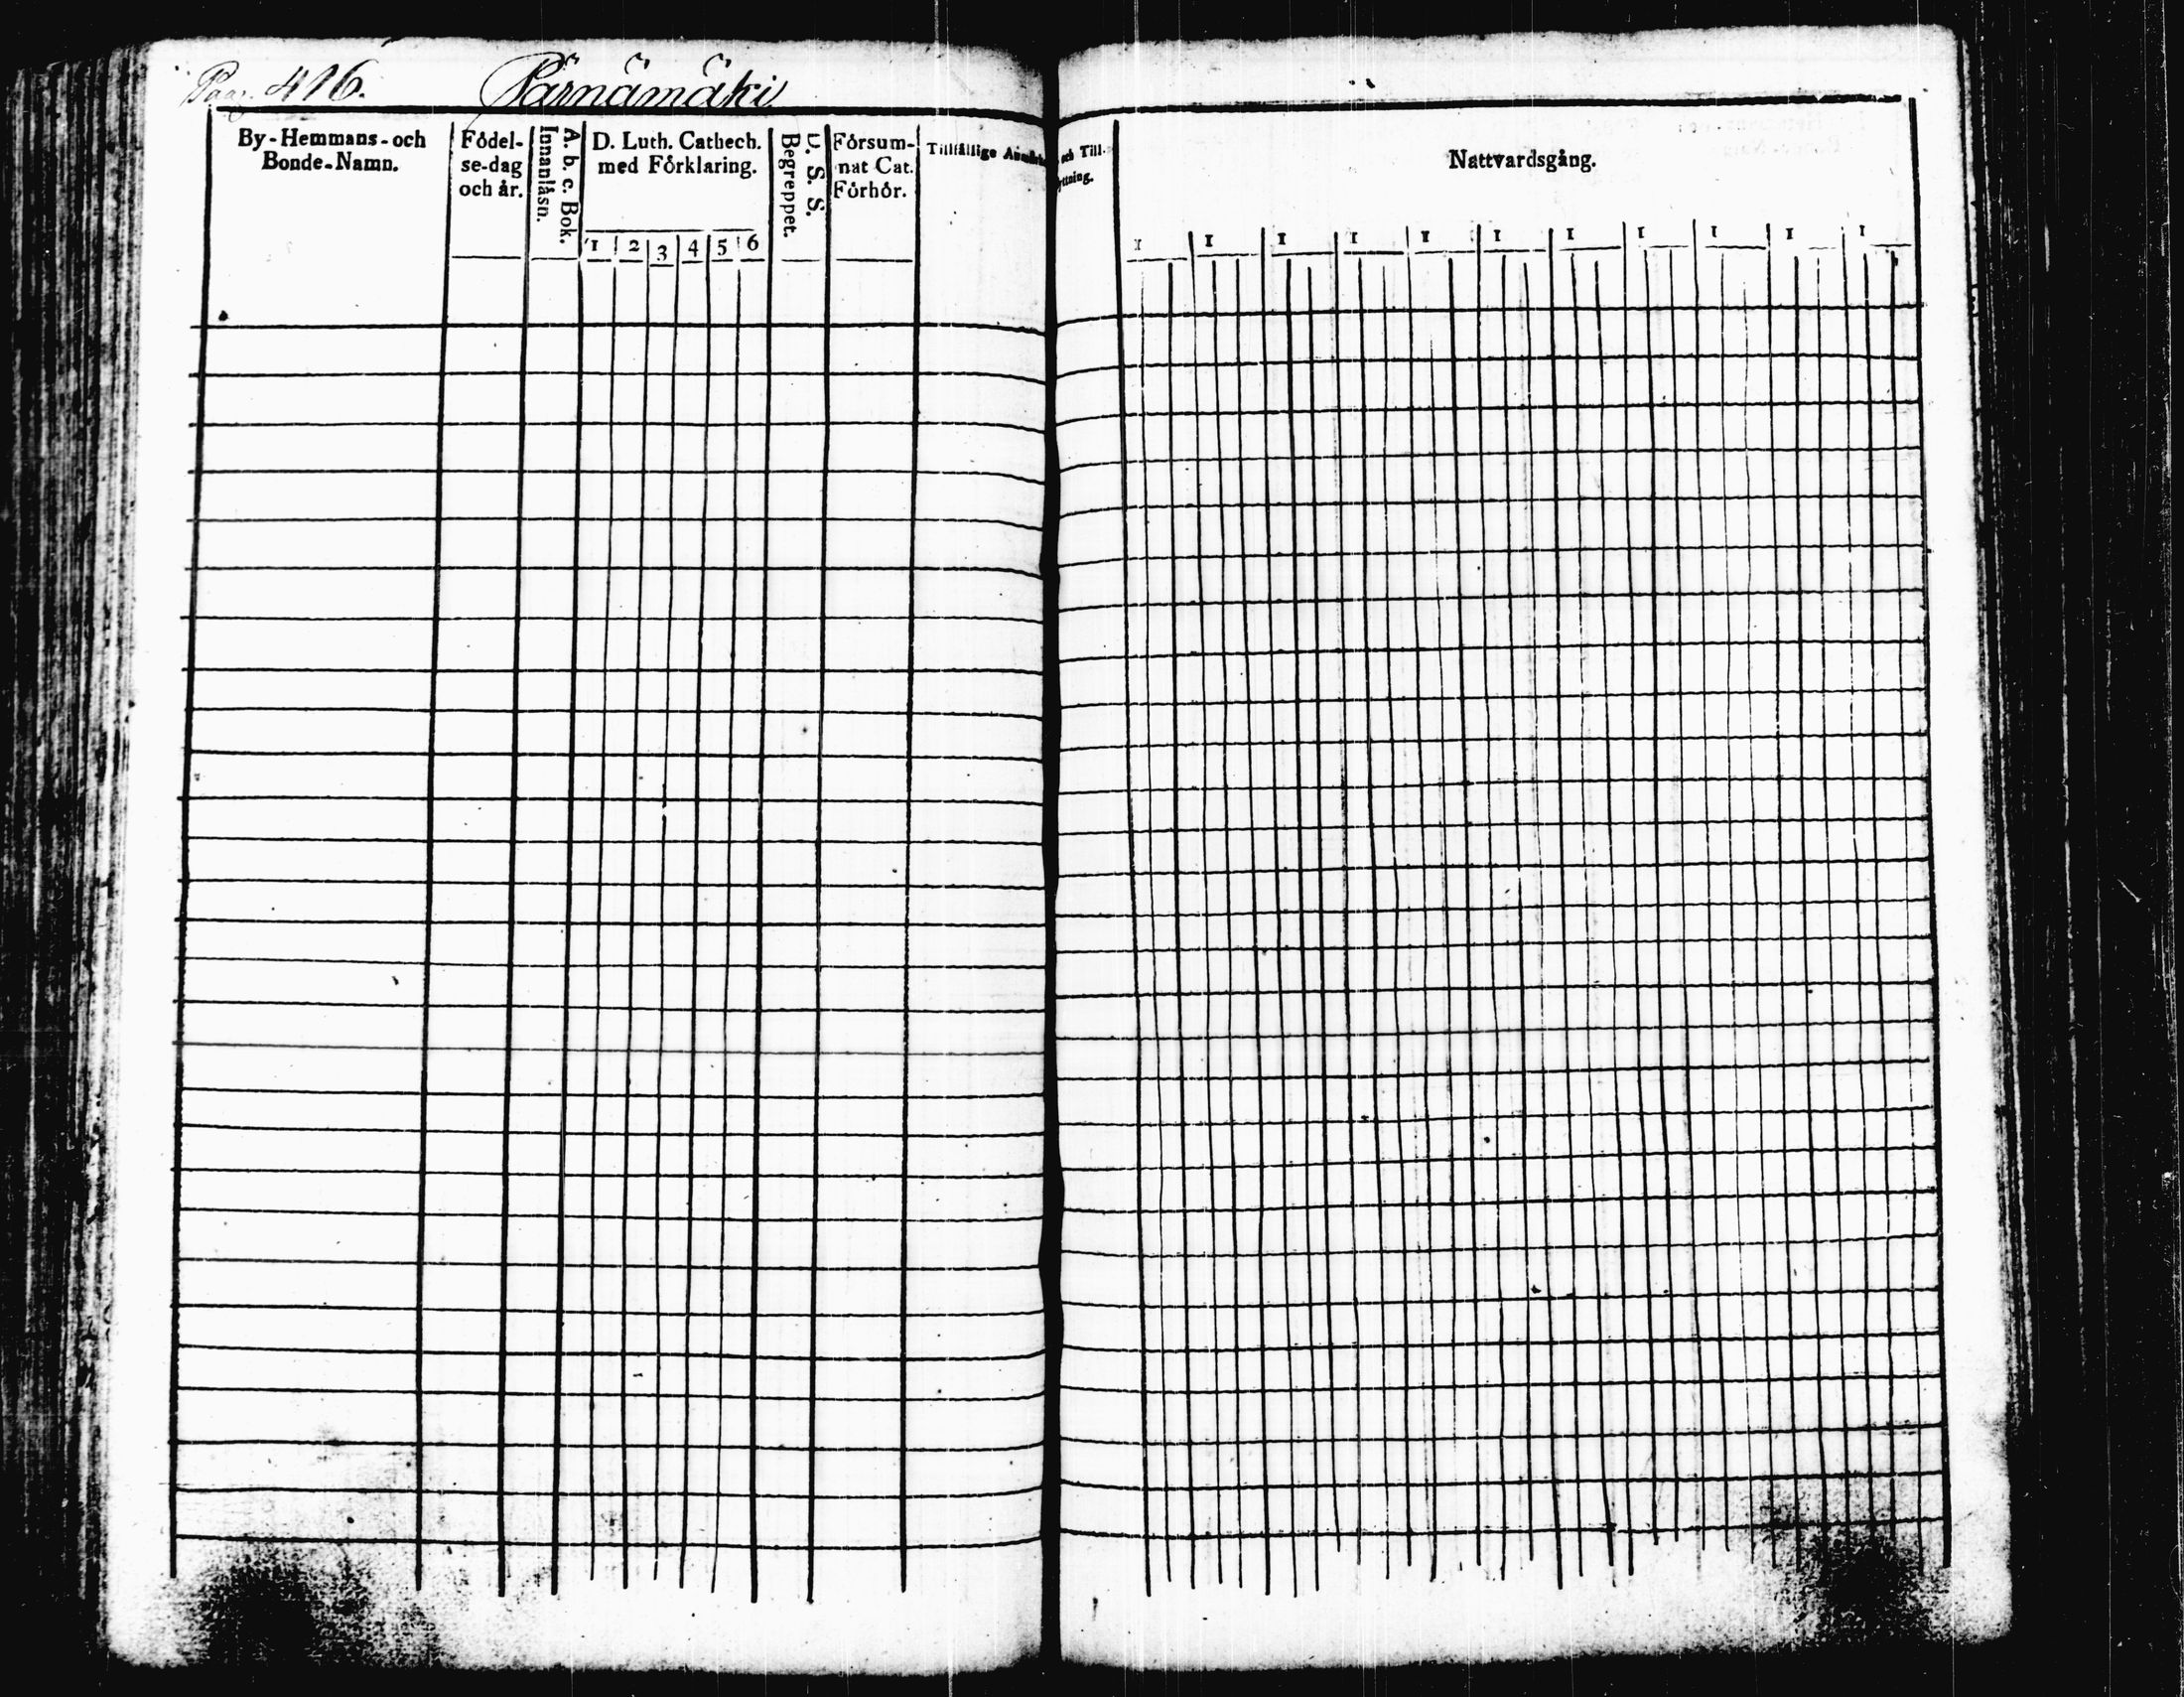 Pag. 416. Pärnämäki
By-Hemmans-och
Bonde-Namn.
Födel-
se-dag
och år.
A. b. c. Bok.
Innanläsn.
D. Luth. Cathech.
med Förklaring.
1 2 3 4 5 6
D. S. S.
Begreppet.
Försum-
nat Cat.
Förhör.
Tillfällige
och Till-
Nattvardsgång.
1 1 1 1 1 1 1 1 1 1 1